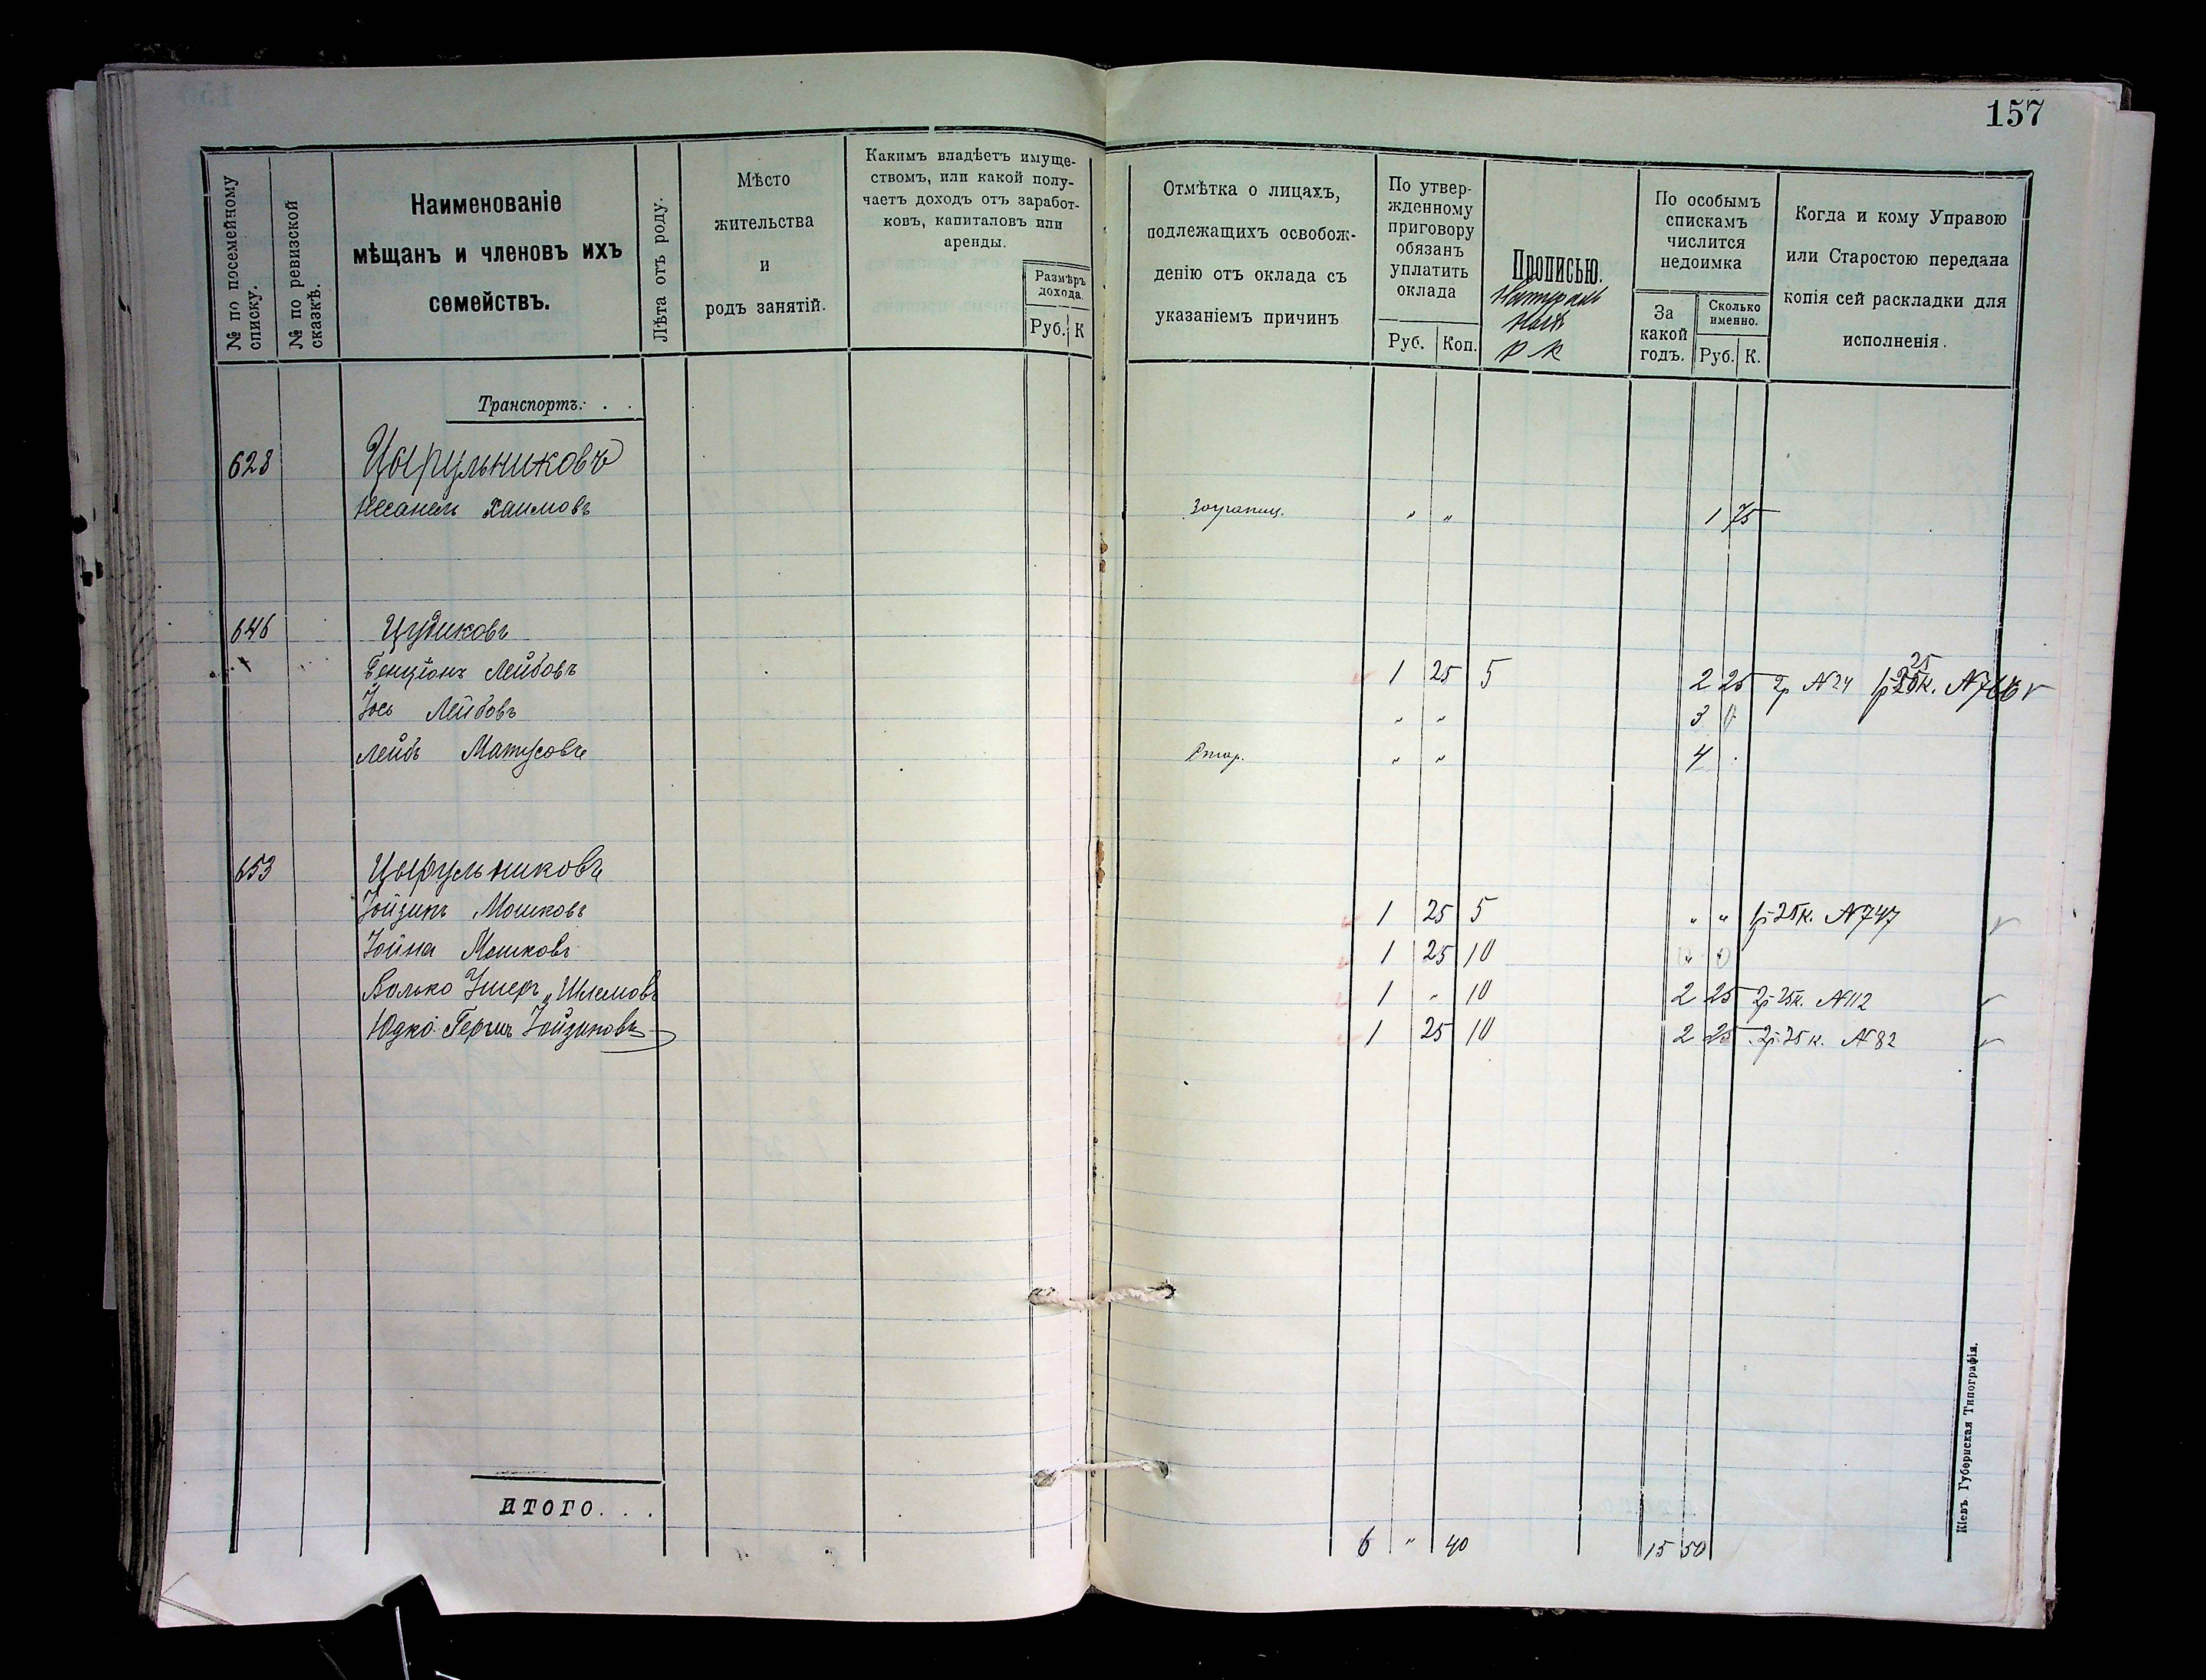 157
№ по посемейному списку.
№ по ревизской сказкѣ.
Наименованіе
мѣщанъ и членовъ ихъ
семействъ.
Лѣта отъ роду.
Мѣсто
жительства
и
родъ занятій.
Какимъ владѣетъ имуще-
ствомъ, или какой полу-
чаетъ доходъ отъ заработ-
ковъ, капиталовъ или
аренды.
Размѣръ
дохода.
Руб. К
Отмѣтка о лицахъ,
подлежащихъ освобож-
денію отъ оклада съ
указаніемъ причинъ
По утвер-
жденному
приговору
обязанъ
уплатить
оклада
Руб. Коп.
Прописью.
р к
По особымъ
спискамъ
числится
недоимка
За
какой
годъ.
Сколько
именно.
Руб. К.
Когда и кому Управою
или Старостою передана
копія сей раскладки для
исполненія.
Транспортъ: . .
628 Цырульниковъ
Несанель Хаимовъ Заграниц. " " 1 75
646 Цудиковъ
Бенціонъ Лейбовъ 1 25 5 2 25 2р №24
Іось Лейбовъ " " 3
Лейбъ Матусовъ " " 4
653 Цырульниковъ
Іойзипъ Мошковъ 1 25 5 " " 1р 25к. №747
Іойна Мошковъ 1 25 10
Волько Ушеръ Шлемовъ 1 " 10 2 25 2р 25к. №112
Юдко Гершъ Іойзиповъ 1 25 10 2 25 2р 25к. №82
ИТОГО. . .
6 " 40 15 50
Кіевъ. Губернская Типографія.